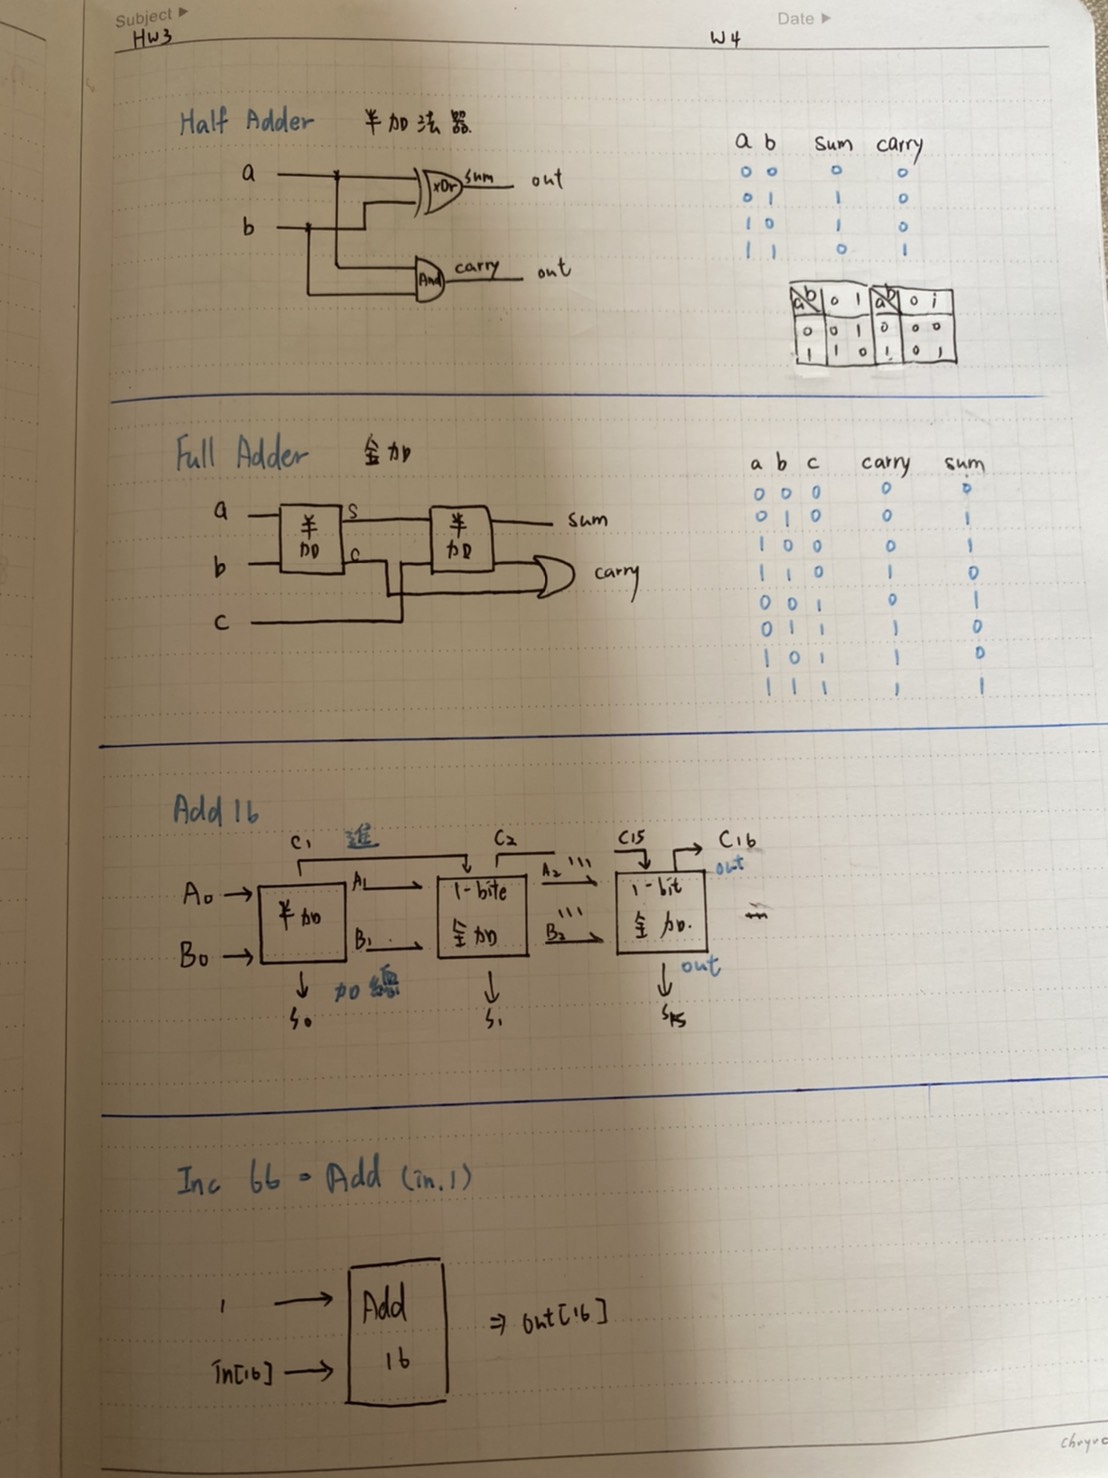 Subject ▶
HW3
W4
Date ▶
Half Adder 半加法器
a
b
xOr
sum out
And
carry out
a b sum carry
0 0 0 0
0 1 1 0
1 0 1 0
1 1 0 1
a b 0 1 a b 0 1
0 0 1 0 0 0
1 1 0 1 0 1
Full Adder 全加
a
b
c
半加
s
c
半加
sum
carry
a b c carry sum
0 0 0 0 0
0 1 0 0 1
1 0 0 0 1
1 1 0 1 0
0 0 1 0 1
0 1 1 1 0
1 0 1 1 0
1 1 1 1 1
Add 16
C1 進 C2 C15 C16
out
A0 A1 A2 ...
半加
1-bite
全加
1-bit
全加.
B0 B1 B2 ...
加總
out
S0 S1 S15
Inc 66 = Add (in.1)
1
Add
16
in[16]
⇒ out[16]